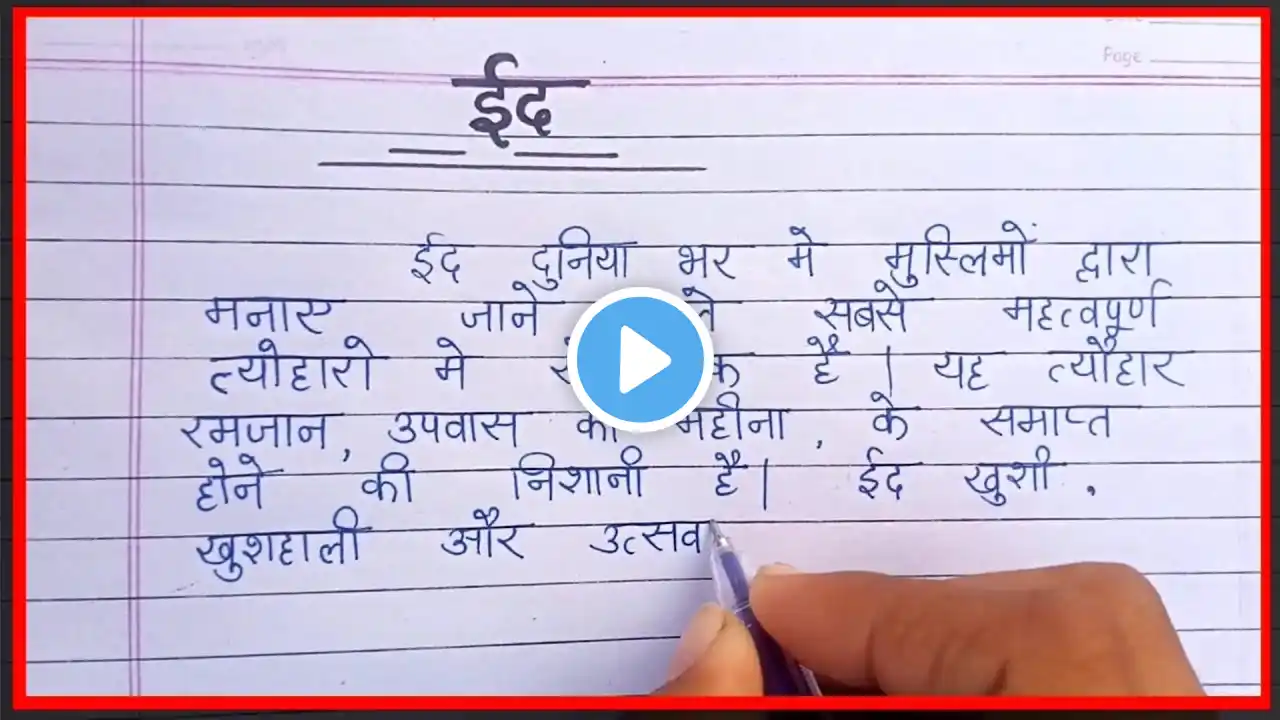 Page
ईद
ईद दुनिया भर मे मुस्लिमों द्वारा
मनाए जाने सबसे महत्वपूर्ण
त्योहारो मे है । यह त्यौहार
रमजान, उपवास का महीना, के समाप्त
होने की निशानी है। ईद खुशी,
खुशहाली और उत्सव